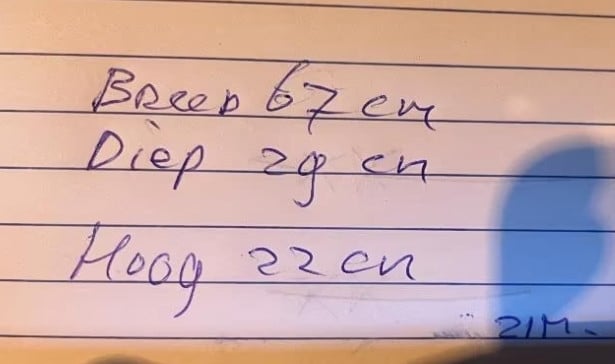 Breed 67 cm
Diep 29 cm
Hoog 22 cm